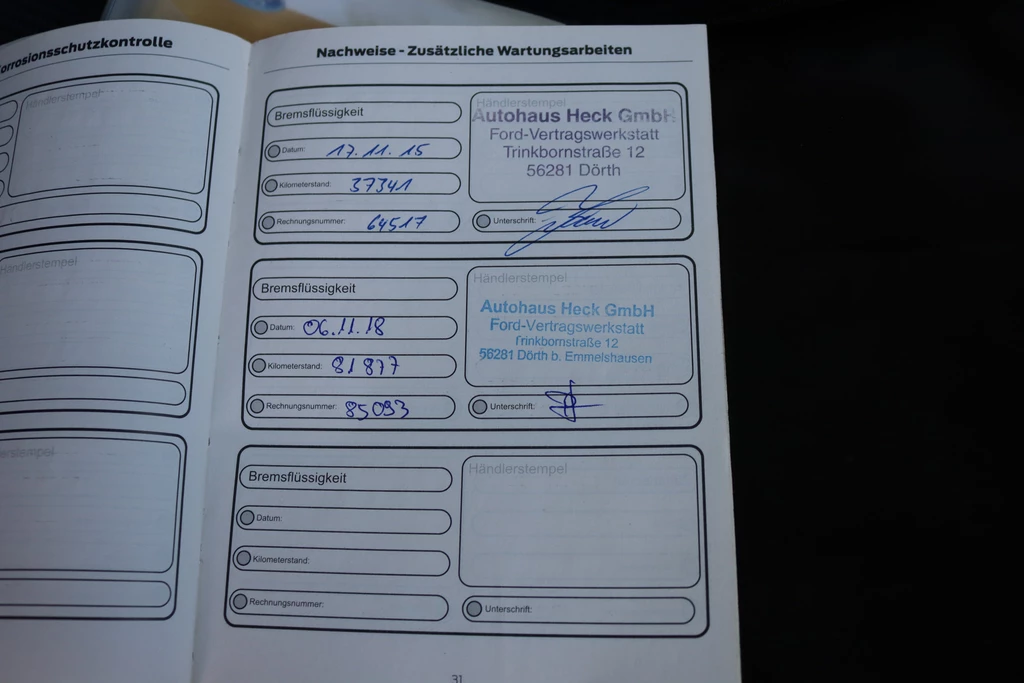 orrosionsschutzkontrolle
Händlerstempel
Händlerstempel
erstempel
Nachweise - Zusätzliche Wartungsarbeiten
Bremsflüssigkeit
Datum: 17.11.15
Kilometerstand: 37341
Rechnungsnummer: 64517
Händlerstempel
Autohaus Heck GmbH
Ford-Vertragswerkstatt
Trinkbornstraße 12
56281 Dörth
Unterschrift:
Bremsflüssigkeit
Datum: 06.11.18
Kilometerstand: 81877
Rechnungsnummer: 85093
Händlerstempel
Autohaus Heck GmbH
Ford-Vertragswerkstatt
Trinkbornstraße 12
56281 Dörth b. Emmelshausen
Unterschrift:
Bremsflüssigkeit
Datum:
Kilometerstand:
Rechnungsnummer:
Händlerstempel
Unterschrift:
31